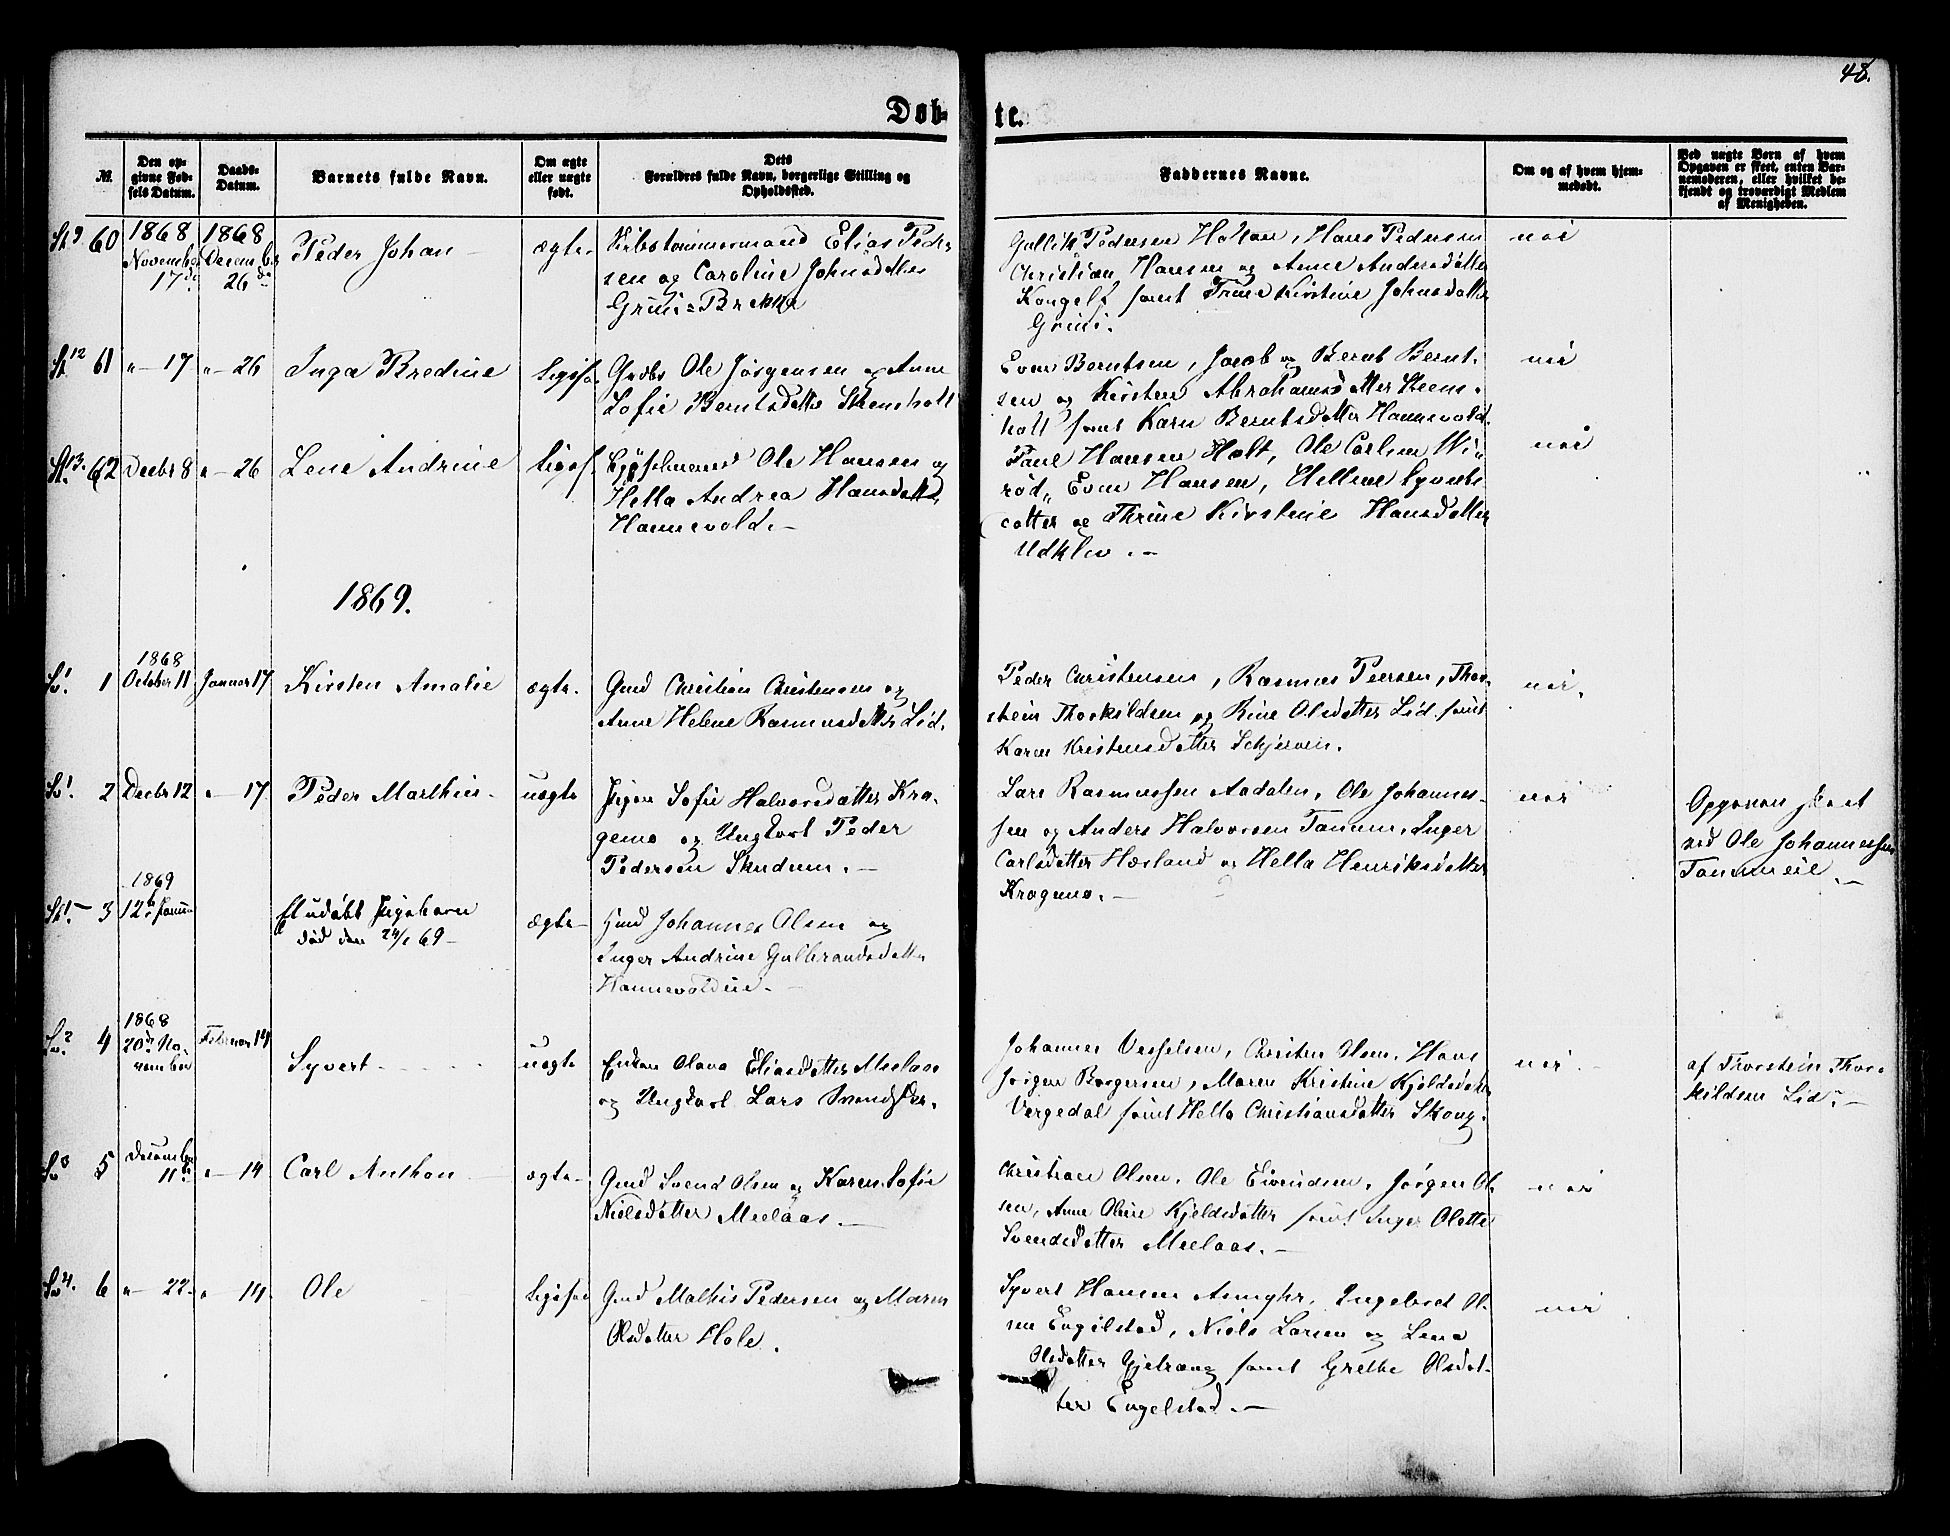 48.
Døb-
te.
№.
Den op-
givne Fød-
sels Datum.
Daabs-
Datum.
Barnets fulde Navn.
Om ægte
eller uægte
født.
Dets
Forældres fulde Navn, borgerlige Stilling og
Opholdssted.
Faddernes Navne.
Om og af hvem hjem-
medøbt.
Ved uægte Børn af hvem
Opgaven er skeet, enten Bar-
nemoderen, eller hvilket be-
kjendt og troværdigt Medlem
af Menigheden.
60
1868
November
17de
1868
Decembr
26de
Peder Johan
ægte
Elias Peder
sen og Caroline Johnsdatter
Grini-Brekke
Gullik Pedersen Holtan, Hans Pedersen
Christian Hansen og Anne Andersdatter
Kongelf samt Trine Kirstine Johnsdatter
Grini.
nei
61
" 17
" 26
Inga Bredine
ligesaa
Gaabr Ole Jørgensen og Anne
Sofie Berntsdatter Steensholt
Even Berntsen, Jacob og Bernt Bernt-
sen og Kirsten Abrahamsdatter Steens-
holt samt Karen Berntsdatter Hannevold.
nei
62
Decbr 8
" 26
Lene Andrine
ligesaa
Ole Hansen og
Hella Andrea Hansdatter
Hannevold.
Paul Hansen Holt, Ole Carlsen Wi-
rød, Even Hansen, Helene Syverts
datter og Thrine Kirstine Hansdatter
Udklev.
nei
1869.
1
1868
October 11
Januar 17
Kirsten Amalie
ægte.
Gmd Christian Christensen og
Anne Helene Rasmusdatter Lid.
Peder Christensen, Rasmus Peersen, Thor-
stein Thorkildsen og Rine Olsdatter Lid samt
Karen Kristensdatter Schjerven.
nei.
2
Decbr 12
" 17
Peder Marthin
uægte
Pigen Sofie Halvorsdatter Kra-
gemo og Ungkarl Peder
Pedersen Skudem.
Lars Rasmussen Aadalen, Ole Johannes-
sen og Anders Halvorsen Tanum, Inger
Carlsdatter Hæsland og Hella Henriksdatter
Kragemo.
nei
Opgaven skeet
ved Ole Johannessen
Tanumeie.
3
1869
12te Januar
Et udøbt Pigebarn
død den 24/1 69
ægte
Gmd Johannes Olsen og
Inger Andrine Gulbrandsdatter
Hannevoldeie.
4
1868
20de No-
vember
Februar 14
Syvert
uægte
Enken Olava Eliasdatter Meelaas
og Ungkarl Lars
Johannes Vesselsen, Christen Olsen, Hans
Jørgen Borgersen, Maren Kristine Kjeldsdatter
Vergedal samt Hella Christiansdatter Skoug.
nei
af Thorstein Thor-
kildsen Lid.
5
December
11te
" 14
Carl Anthon
ægte
Gmd Svend Olsen og Karen Sofie
Nielsdatter Meelaas.
Christian Olsen, Ole Eivindsen, Jørgen Ol-
sen, Anne Oline Kjeldsdatter samt Inger Olette
Svendsdatter Meelaas.
nei
6
" 22
" 14
Ole
ligesaa
Gmd Mathis Pedersen og Maren
Olsdatter Hole.
Syvert Hansen Ingebret Ol-
sen Engelstad, Niels Larsen og Lena
Olsdatter Gjelvang samt Grethe Olsdat-
ter Engelstad.
nei